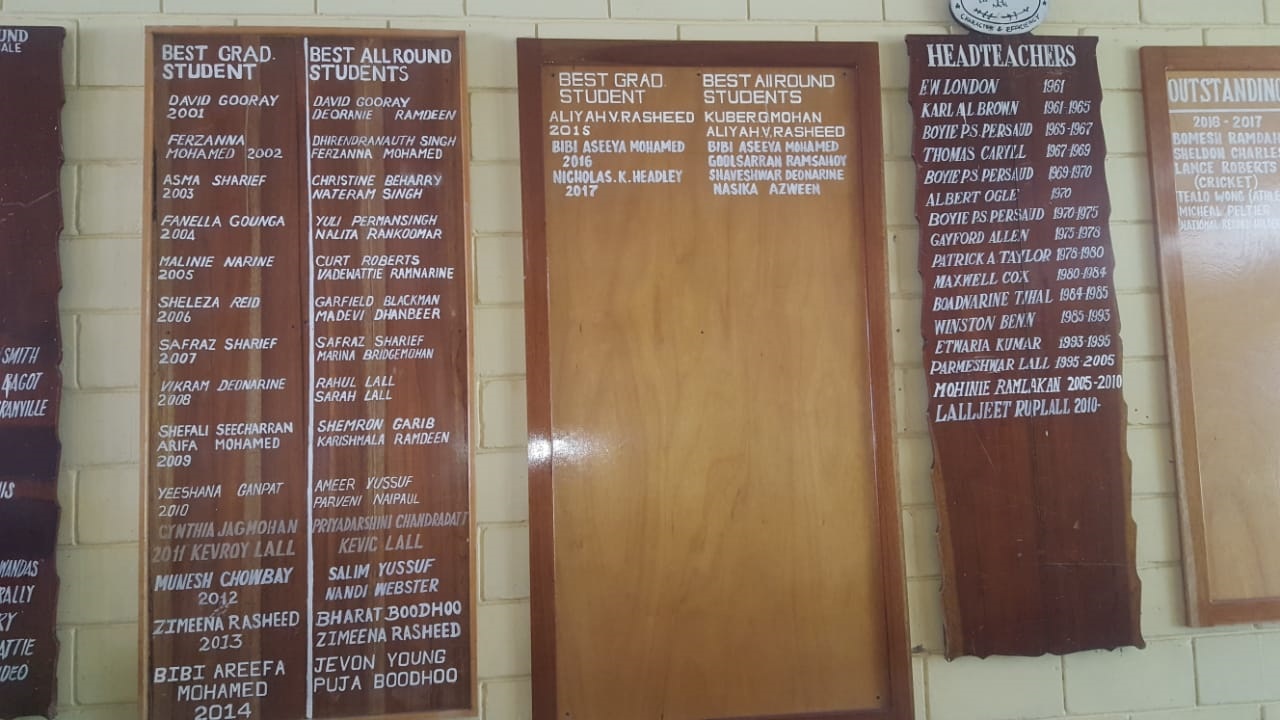 UND
SMITH
BAGOT
GRANVILLE
CHARACTER & EFFICIENCY
BEST GRAD.
STUDENT
DAVID GOORAY
2001
FERZANNA
MOHAMED 2002
ASMA SHARIEF
2003
FANELLA GOUNGA
2004
MALINIE NARINE
2005
SHELEZA REID
2006
SAFRAZ SHARIEF
2007
VIKRAM DEONARINE
2008
SHEFALI SEECHARRAN
ARIFA MOHAMED
2009
YEESHANA GANPAT
2010
CYNTHIA JAGMOHAN
2011 KEVROY LALL
MUNESH CHOWBAY
2012
ZIMEENA RASHEED
2013
BIBI AREEFA
MOHAMED
2014
BEST ALLROUND
STUDENTS
DAVID GOORAY
DEORANIE RAMDEEN
DHIRENDRANAUTH SINGH
FERZANNA MOHAMED
CHRISTINE BEHARRY
NATERAM SINGH
YULI PERMANSINGH
NALITA RANKOOMAR
CURT ROBERTS
VADEWATTIE RAMNARINE
GARFIELD BLACKMAN
MADEVI DHANBEER
SAFRAZ SHARIEF
MARINA BRIDGEMOHAN
RAHUL LALL
SARAH LALL
SHEMRON GARIB
KARISHMALA RAMDEEN
AMEER YUSSUF
PARVENI NAIPAUL
PRIYADARSHINI CHANDRADATT
KEVIC LALL
SALIM YUSSUF
NANDI WEBSTER
BHARAT BOODHOO
ZIMEENA RASHEED
JEVON YOUNG
PUJA BOODHOO
BEST GRAD.
STUDENT
ALIYAH.V.RASHEED
2015
BIBI ASEEYA MOHAMED
2016
NICHOLAS.K.HEADLEY
2017
BEST AllROUND
STUDENTS
KUBER G MOHAN
ALIYAH.V.RASHEED
BIBI ASEEYA MOHAMED
GOOLSARRAN RAMSAHOY
SHAVESHWAR DEONARINE
NASIKA AZWEEN
HEADTEACHERS
E.W LONDON 1961
KARL AL BROWN 1961-1965
BOYIE P.S. PERSAUD 1965-1967
THOMAS CARYLL 1967-1969
BOYIE P.S PERSAUD 1969-1970
ALBERT OGLE 1970
BOYIE P.S PERSAUD 1970-1975
GAYFORD ALLEN 1975-1978
PATRICK A TAYLOR 1978-1980
MAXWELL COX 1980-1984
BOADNARINE TIHAL 1984-1985
WINSTON BENN 1985-1993
ETWARIA KUMAR 1993-1995
PARMESHWAR LALL 1995-2005
MOHINIE RAMLAKAN 2005-2010
LALLJEET RUPLALL 2010-
OUTSTANDING
2016 - 2017
BOMESH RAMDAH
SHELDON CHARLES
LANCE ROBERTS
(CRICKET)
TEALO WONG (ATHL
MICHEAL PELTIER